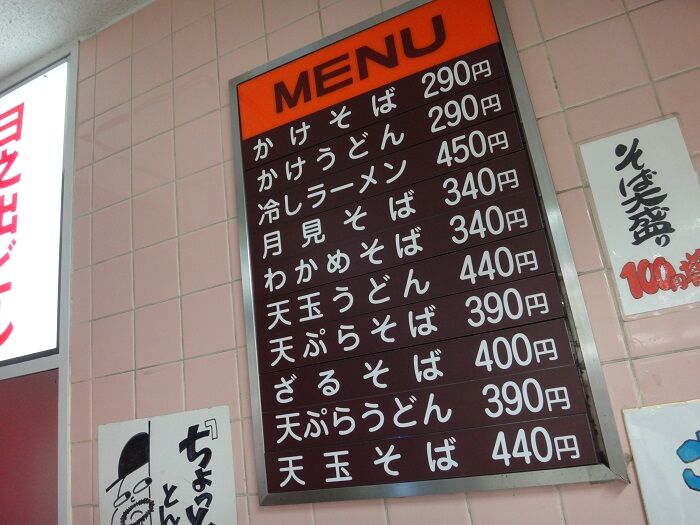 MENU
かけそば 290円
かけうどん 290円
冷しラーメン 450円
月見そば 340円
わかめそば 340円
天玉うどん 440円
天ぷらそば 390円
ざるそば 400円
天ぷらうどん 390円
天玉そば 440円
そば大盛り
100円
『ちょっと